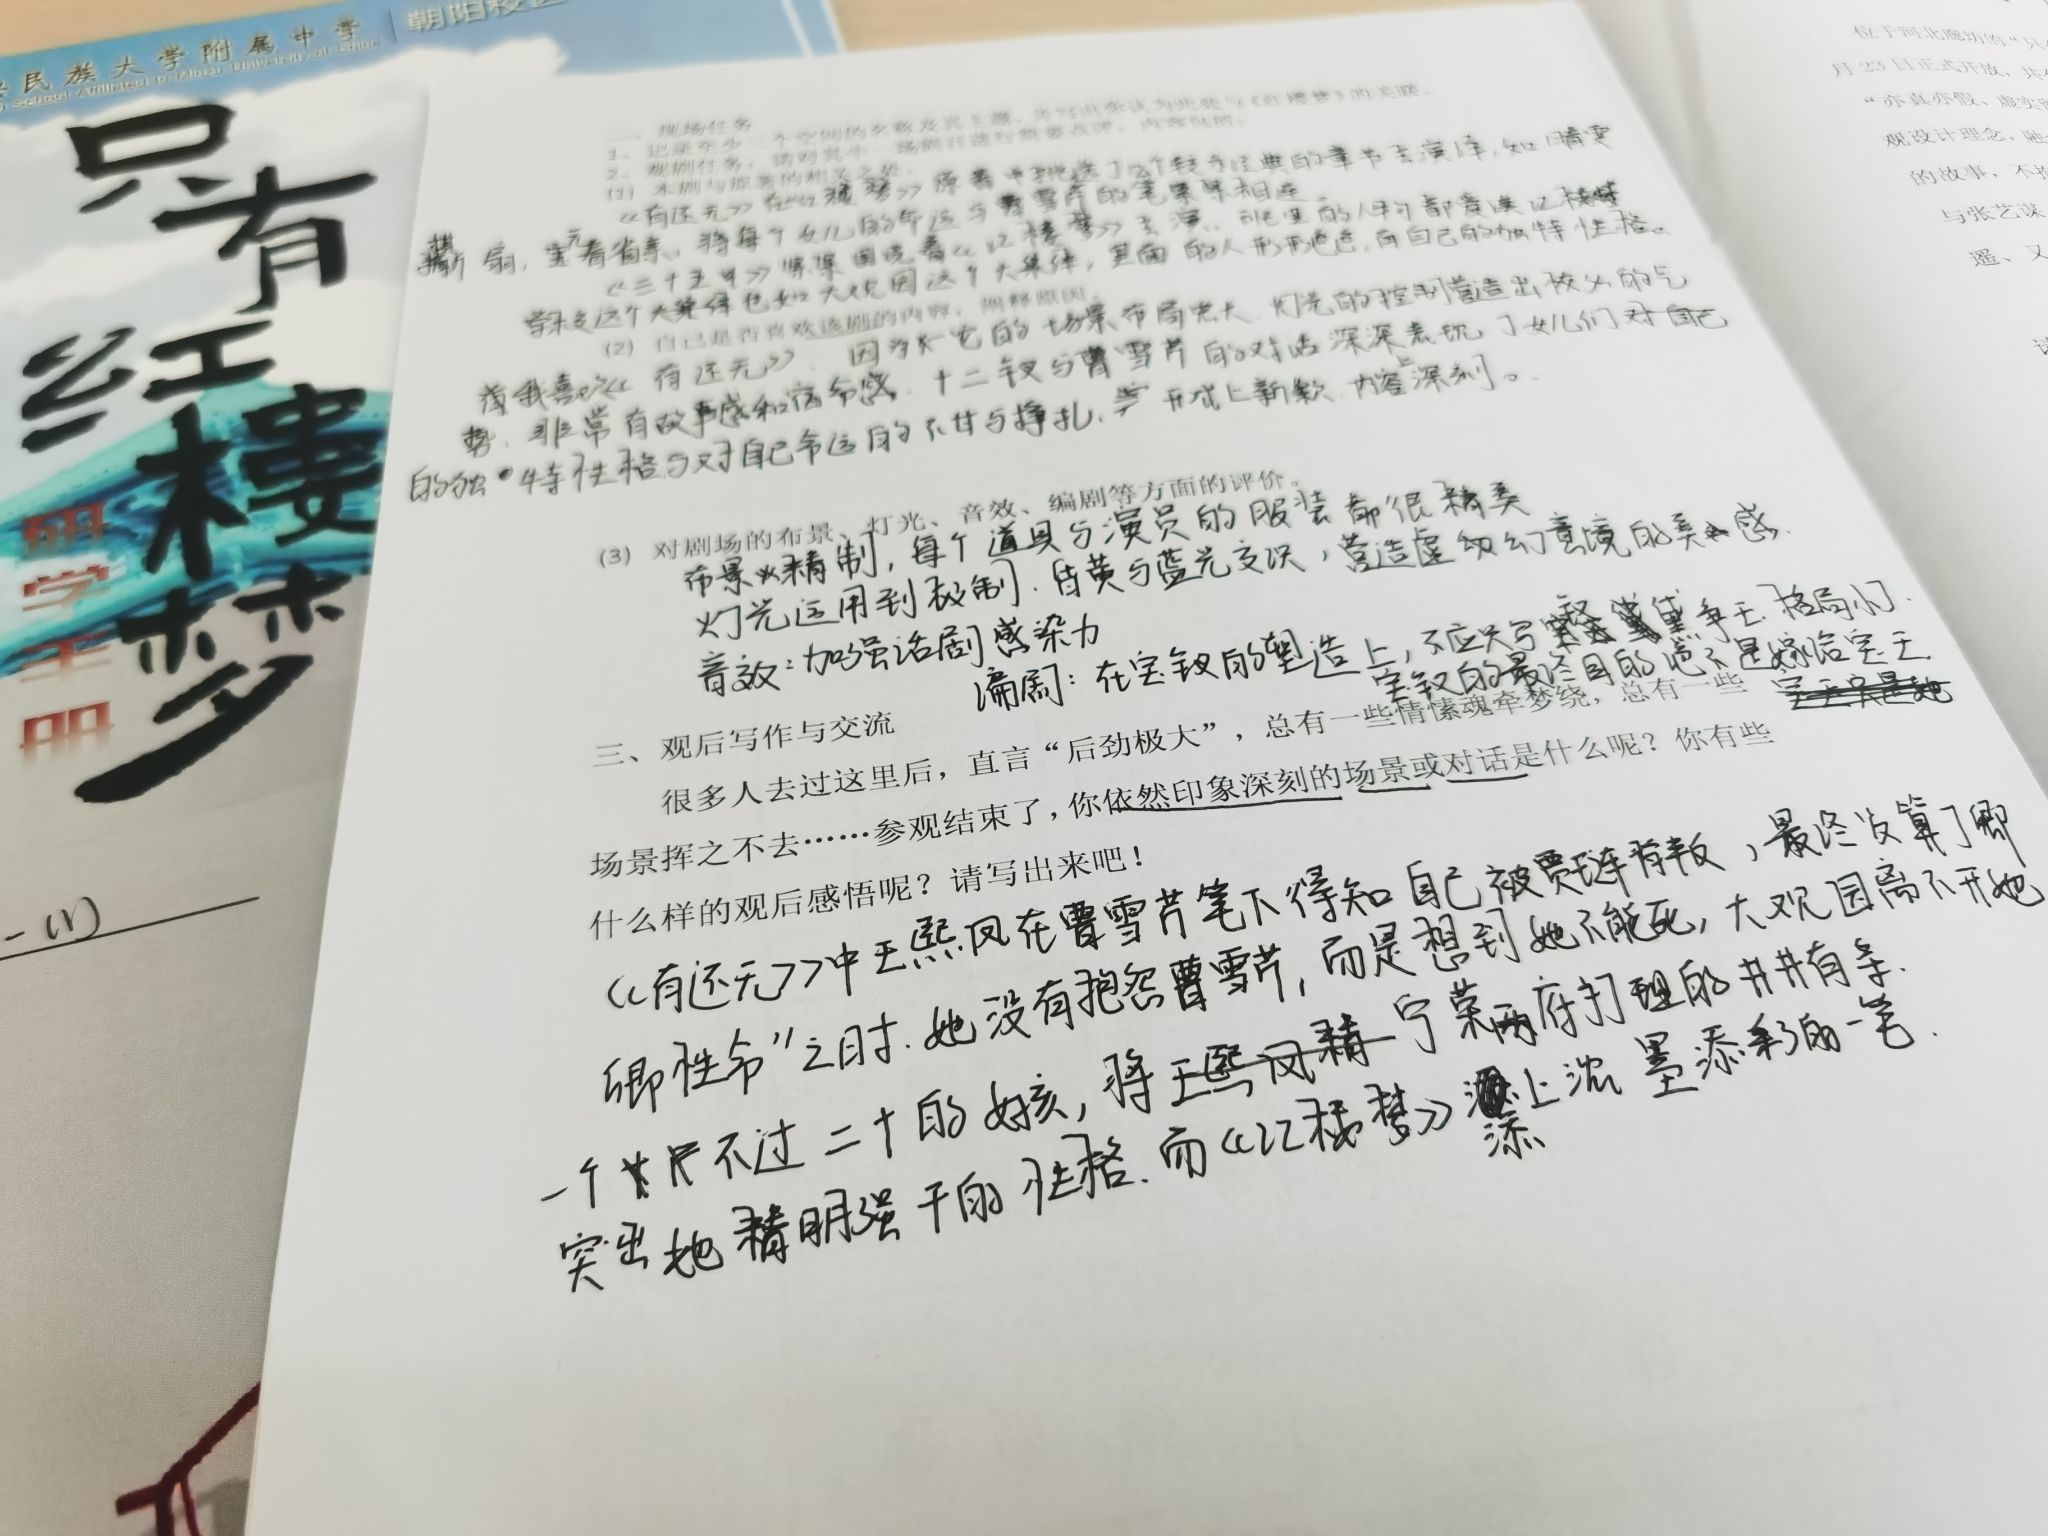 民族大学附属中学 朝阳校区
School Affiliated to Minzu University of China
只有
红楼梦
研学手册
(1)
二、现场任务
1、记录至少三个空间的名称及其主题,并写出你认为此处与《红楼梦》的关联。
2、观剧任务:请对其中一场剧目进行简要点评,内容包括:
(1) 本剧与原著的相关之处。
《有还无》在《红楼梦》原著中挑选了几个较为经典的章节去演绎,如晴雯
扇,元春省亲,将每个女儿的命运与曹雪芹的笔紧紧相连。
《二十五年》紧紧围绕着《红楼梦》去演,
学校这个大集体也如大观园这个大集体,里面的人形形色色,有自己的性格。
(2) 自己是否喜欢该剧的内容,阐释原因。
我喜欢《有还无》,因为它的场景布局宏大,灯光的控制营造出的气
势,非常有故事感和宿命感,十二钗与曹雪芹的对话深深表现了女儿们对自己
的独特性格与对自己命运的不甘与挣扎,形式上新颖,内容上深刻。
(3) 对剧场的布景、灯光、音效、编剧等方面的评价。
布景精制,每个道具与演员的服装都很精美
灯光运用到极制,昏黄与蓝光交织,营造虚幻意境的美感.
音效:加强话剧感染力
编剧:在宝钗的塑造上,不应只写钗黛争玉,格局小了.
宝钗的最终目的绝不是嫁给宝玉.
三、观后写作与交流
很多人去过这里后,直言“后劲极大”,总有一些情愫魂牵梦绕,总有一些
场景挥之不去……参观结束了,你依然印象深刻的场景或对话是什么呢?你有些
什么样的观后感悟呢?请写出来吧!
《有还无》中王熙凤在曹雪芹笔下得知自己被贾琏背叛,最终“反算了卿
卿性命”之时.她没有抱怨曹雪芹,而是想到她不能死,大观园离不开她
一个才不过二十的女孩,将宁荣两府打理的井井有条.
突出她精明强干的性格.而《红楼梦》添上浓墨添彩的一笔.
位于河北廊坊的“只
月23日正式开放,共
“亦真亦假、虚实
观设计理念,融
的故事,不
与张艺谋
遥、又